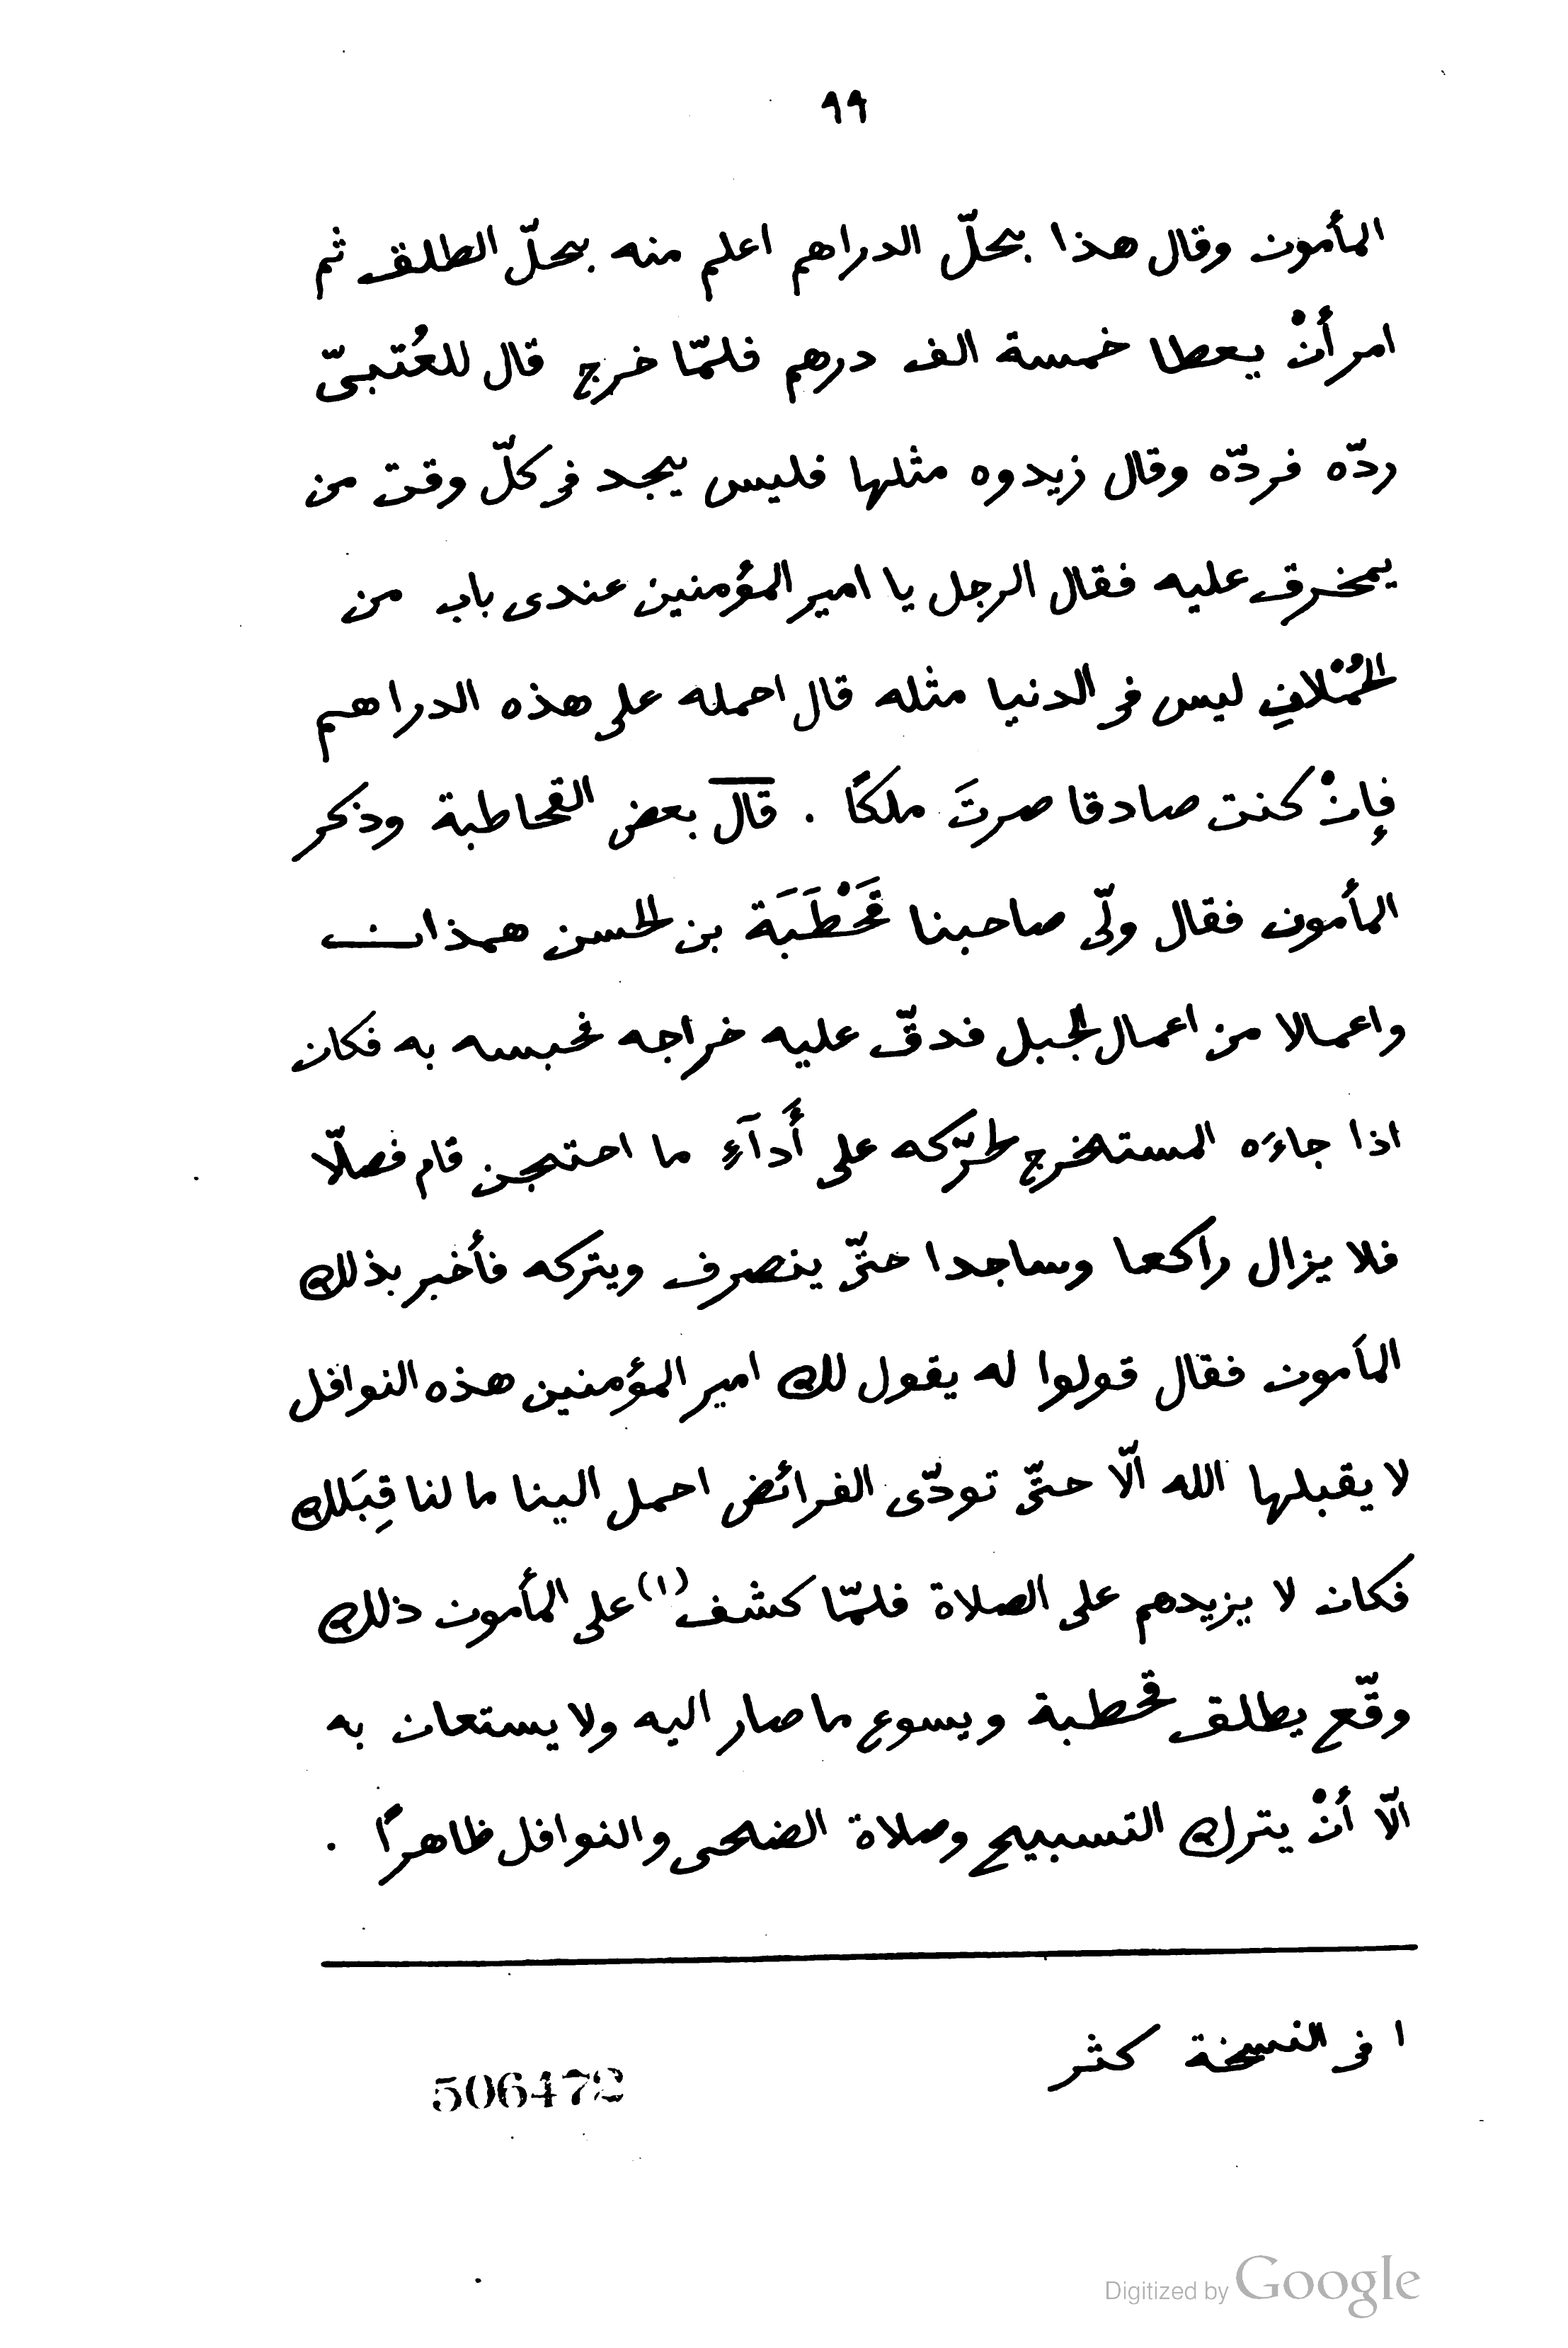 ٩٩
المأمون وقال هذا بحلّ الدراهم اعلم منه بحلّ الطلق ثم
امر أنْ يعطا خمسة الف درهم فلمّا خرج قال للعُتبىّ
ردّه فردّه وقال زيدوه مثلها فليس يجد فى كلّ وقت من
يمخرق عليه فقال الرجل يا امير المؤمنين عندى باب من
الحُمْلانِ ليس فى الدنيا مثله قال احمله على هذه الدراهم
فإنْ كنت صادقا صرتَ ملكًا . قال بعض القحاطبة وذكر
المأمون فقال ولّى صاحبنا قَحْطَبَة بن الحسن همذان
واعمالا من اعمال الجبل فدقّ عليه خراجه فحبسه به فكان
اذا جاءَه المستخرج لحرّكه على أَدآءِ ما احتجن قام فصلّا
فلا يزال راكعا وساجدا حتّى ينصرف ويتركه فأخبر بذلك
المأمون فقال قولوا له يقول لك امير المؤمنين هذه النوافل
لا يقبلها الله الّا حتّى تودّى الفرائض احمل الينا ما لنا قِبَلك
فكان لا يزيدهم على الصلاة فلمّا كشف (١) على المأمون ذلك
وقّع يطلق قحطبة ويسوع ما صار اليه ولا يستعان به
الّا أنْ يترك التسبيح وصلاة الضحى والنوافل ظاهرًا .
١ فى النسخة كثر
506472
Digitized by Google